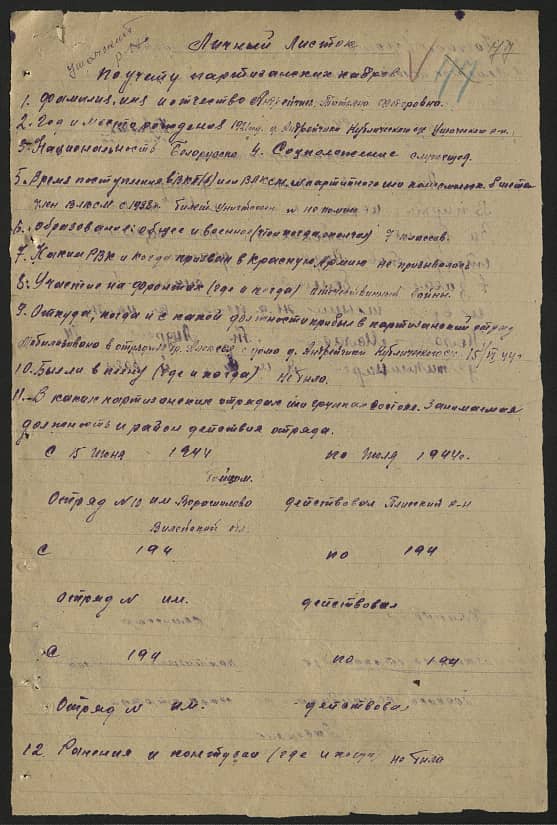 Ушачский
р-н
77
77
Личный Листок
По учету партизанских кадров
1. Фамилия, имя и отчество Татьяна
2. Год и место рождения д. Ушачского р-н.
3. Национальность Белоруска 4. Соцположение служащ.
5. Время поступления в ВКП(б) или ВЛКСМ, №партийного или комсомольск. билета
член ВЛКСМ с билет уничтожен № не помню
6. Образование: общее и военное (что и когда окончил) 7 классов.
7. Каким РВК и когда призван в Красную Армию не призывалась
8. Участие на фронтах (где и когда) отечественной войны.
9. Откуда, когда и с какой должности прибыл в партизанский отряд
Мобилизована в отряд из дома д. 15/VI 44 г.
10. Был ли в плену (где и когда) не была.
11. В каких партизанских отрядах или группах состоял. Занимаемая
должность и район действия отряда.
С 15 июня 1944 по июля 1944 г.
бойцом.
Отряд №10 им Ворошилова действовал Плисский р-н
Вилейской обл.
С 194 по 194
Отряд № им. действовал
С 194 по 194
Отряд № им. действовал
12. Ранения и контузии (где и когда) не было